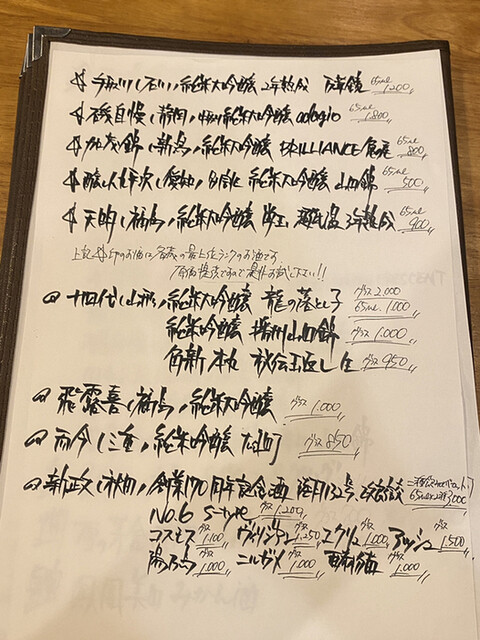 手取川(石川)純米大吟醸 2年熟成 万年鏡 65ml 1,200
磯自慢(静岡)中取り純米大吟醸 adagio 65ml 1,800
加茂錦(新潟)純米大吟醸 BRILLIANCE 65ml 800
醸し人九平次(愛知)別誂 純米大吟醸 山田錦 65ml 500
天明(福島)純米大吟醸 氷温 3年熟成 65ml 900
上記 印のお酒は各蔵の最上位ランクのお酒です
原価提供ですので是非お試し下さい!!
十四代(山形)純米大吟醸 龍の落とし子 グラス 2,000 65ml 1,000
純米吟醸 播州山田錦 グラス 1,000
角新 本丸 秘伝玉返し 生 グラス 950
飛露喜(福島)純米大吟醸 グラス 1,000
而今(三重)純米吟醸 グラス 850
新政(秋田)創業170周年記念酒 65ml 3,000
No.6 S-type グラス 1,200
コスモス グラス 1,100 ヴィリジアン グラス 1,250 エクリュ グラス 1,000 アッシュ グラス 1,500
陽乃鳥 グラス 1,000 ニルガメ グラス 1,000 グラス 1,000